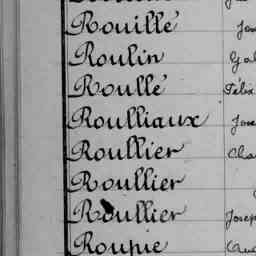 Rouillé
Roulin
Roullé Félix
Roulliaux
Roullier
Roullier
Roullier
Roupie